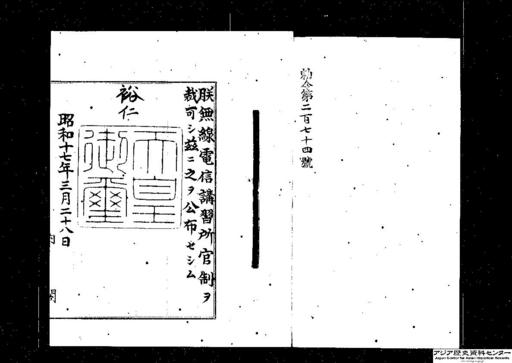 勅令第二百七十四號
朕無線電信講習所官制ヲ
裁可シ茲ニ之ヲ公布セシム
裕仁
天皇
御璽
昭和十七年三月二十八日
内閣
アジア歴史資料センター
Japan Center for Asian Historical Records